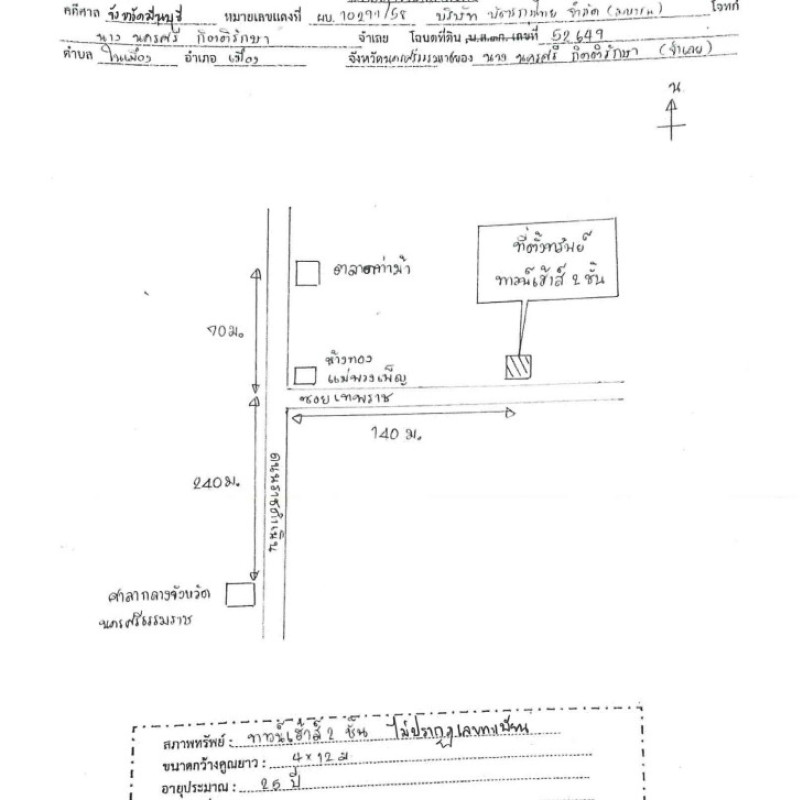 คดีศาล จังหวัดมีนบุรี หมายเลขแดงที่ ผบ. 10291/58 บริษัท บัตรกรุงไทย จำกัด (มหาชน) โจทก์
นาง นครศรี กิตติรักษา จำเลย โฉนดที่ดิน น.ส.๓ก. เลขที่ 52649
ตำบล ในเมือง อำเภอ เมือง จังหวัดนครศรีธรรมราชของ นาง นครศรี กิตติรักษา (จำเลย)
น
ที่ตั้งทรัพย์
ทาวน์เฮ้าส์ 2 ชั้น
ตลาดท่าม้า
70 ม.
ห้างทอง
แม่พวงเพ็ญ
ซอย เทพราช
140 ม.
240 ม.
ถนนราชดำเนิน
ศาลากลางจังหวัด
นครศรีธรรมราช
สภาพทรัพย์ : ทาวน์เฮ้าส์ 2 ชั้น ไม่ปรากฏเลขทะเบียน
ขนาดกว้างคูณยาว : 4 × 12 ม
อายุประมาณ : 25 ปี